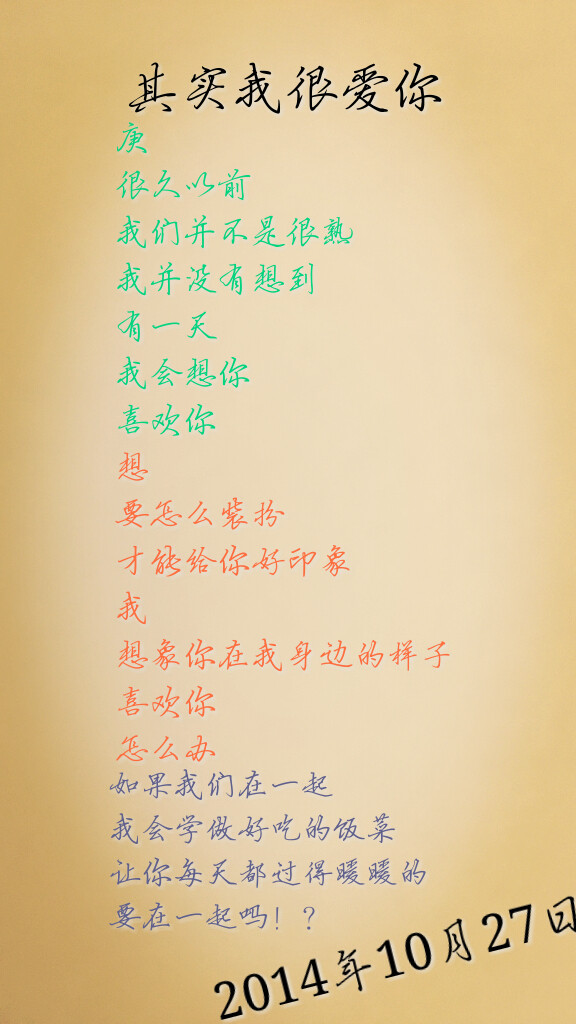 其实我很爱你
庚
很久以前
我们并不是很熟
我并没有想到
有一天
我会想你
喜欢你
想
要怎么装扮
才能给你好印象
我
想象你在我身边的样子
喜欢你
怎么办
如果我们在一起
我会学做好吃的饭菜
让你每天都过得暖暖的
要在一起吗！？
2014年10月27日